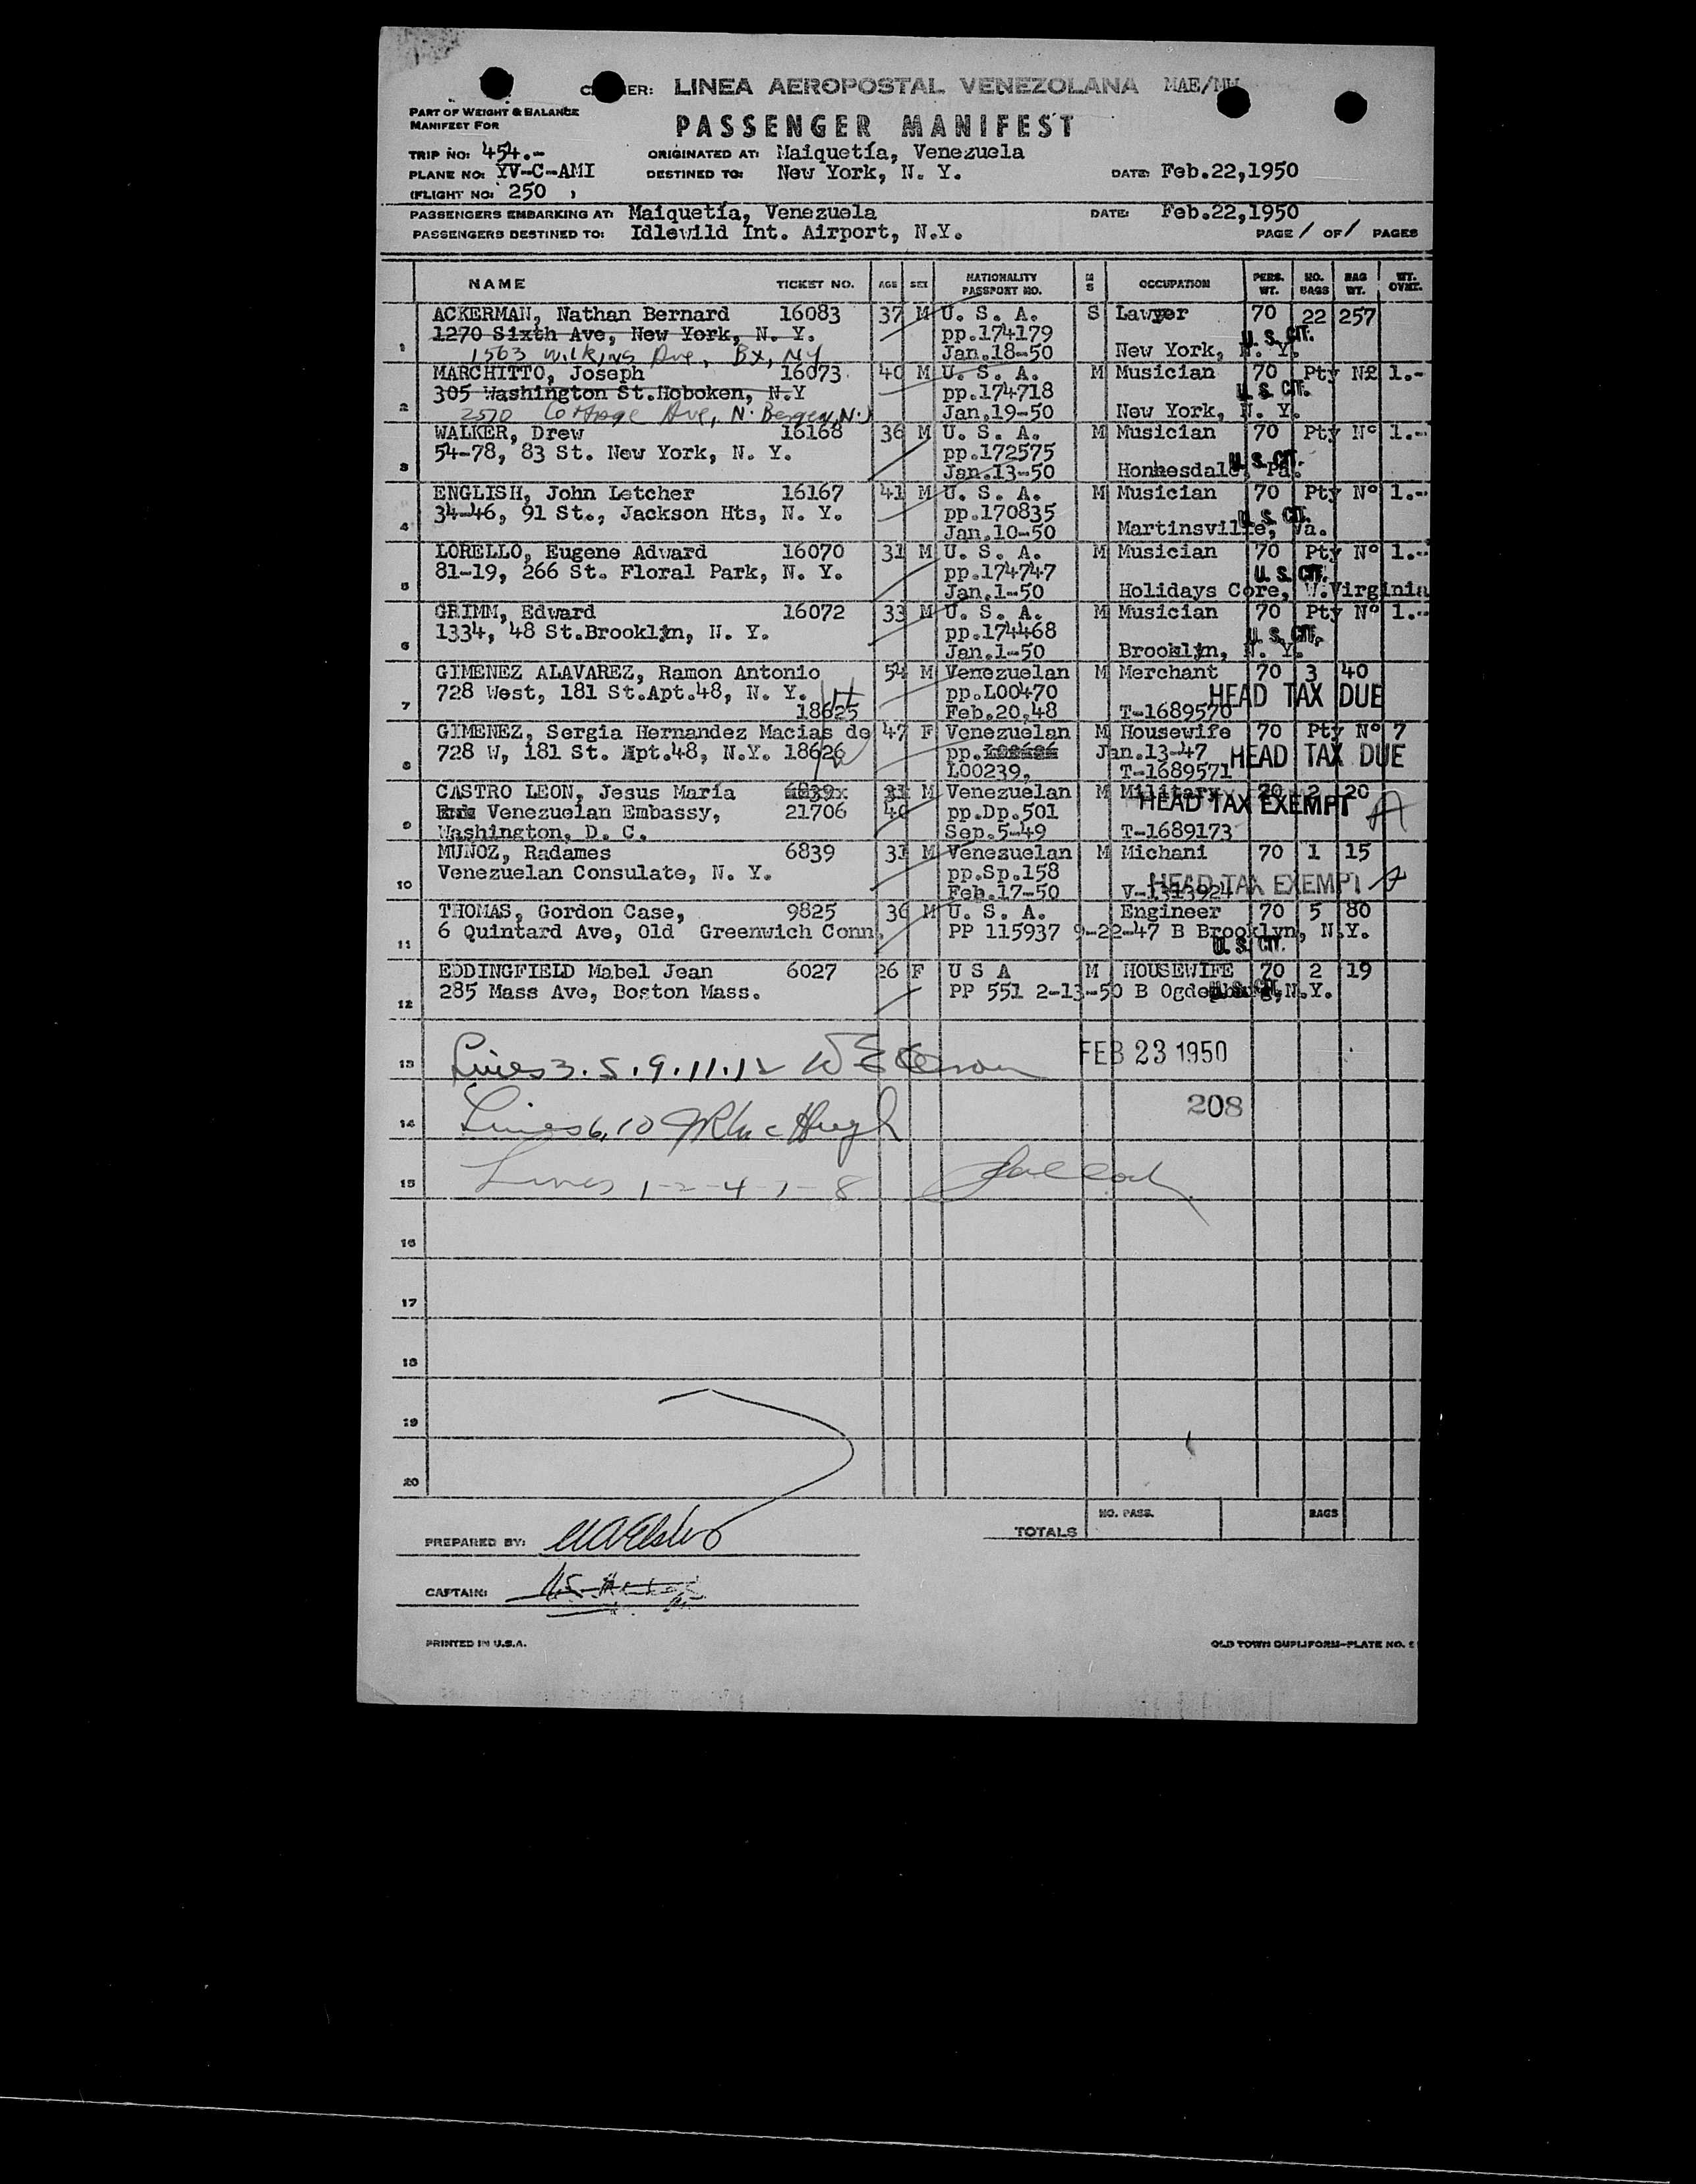 LINEA AEROPOSTAL VENEZOLANA MAE/MW
PART OF WEIGHT & BALANCE
MANIFEST FOR
PASSENGER MANIFEST
TRIP NO: 454.- ORIGINATED AT: Maiquetía, Venezuela
PLANE NO: YV-C-AMI DESTINED TO: New York, N. Y. DATE: Feb.22,1950
(FLIGHT NO: 250 )
PASSENGERS EMBARKING AT: Maiquetía, Venezuela DATE: Feb.22,1950
PASSENGERS DESTINED TO: Idlewild Int. Airport, N.Y. PAGE / OF / PAGES
NAME TICKET NO. AGE SEX NATIONALITY PASSPORT NO. M S OCCUPATION PERS. WT. NO. BAGS BAG WT. WT. OVHT.
ACKERMAN, Nathan Bernard 16083 37 M U. S. A. S Lawyer 70 22 257
1270 Sixth Ave, New York, N. Y. pp.174179 U. S. CIT.
1 1563 Wilkins Ave, Bx, NY Jan.18-50 New York, N. Y.
MARCHITTO, Joseph 16073 40 M U. S. A. M Musician 70 Pty Nº 1.-
305 Washington St.Hoboken, N.Y pp.174718 U. S. CIT.
2 2570 Cottage Ave, N. Bergen, N.J Jan.19-50 New York, N. Y.
WALKER, Drew 16168 36 M U. S. A. M Musician 70 Pty Nº 1.-
54-78, 83 St. New York, N. Y. pp.172575 U. S. CIT.
3 Jan.13-50 Honhesdale, Pa.
ENGLISH, John Letcher 16167 41 M U. S. A. M Musician 70 Pty Nº 1.-
34-46, 91 St., Jackson Hts, N. Y. pp.170835 U. S. CIT.
4 Jan.10-50 Martinsville, Va.
LORELLO, Eugene Adward 16070 31 M U. S. A. M Musician 70 Pty Nº 1.-
81-19, 266 St. Floral Park, N. Y. pp.174747 U. S. CIT.
5 Jan.1-50 Holidays Core, W.Virginia
GRIMM, Edward 16072 33 M U. S. A. M Musician 70 Pty Nº 1.-
1334, 48 St.Brooklyn, N. Y. pp.174468 U. S. CIT.
6 Jan.1-50 Brooklyn, N. Y.
GIMENEZ ALAVAREZ, Ramon Antonio 54 M Venezuelan M Merchant 70 3 40
728 West, 181 St.Apt.48, N. Y. pp.L00470 HEAD TAX DUE
7 18625 Feb.20,48 T-1689570
GIMENEZ, Sergia Hernandez Macias de 47 F Venezuelan M Housewife 70 Pty Nº 7
728 W, 181 St. Apt.48, N.Y. 18626 pp. Jan.13-47 HEAD TAX DUE
8 L00239, T-1689571
CASTRO LEON, Jesus María 6839 31 M Venezuelan M Military 70 2 20
Venezuelan Embassy, 21706 40 pp.Dp.501 HEAD TAX EXEMPT A
9 Washington, D. C. Sep.5-49 T-1689173
MUÑOZ, Radames 6839 31 M Venesuelan M Michani 70 1 15
Venezuelan Consulate, N. Y. pp.Sp.158 HEAD TAX EXEMPT A
10 Feb.17-50 V-1313924
THOMAS, Gordon Case, 9825 36 M U. S. A. Engineer 70 5 80
6 Quintard Ave, Old Greenwich Conn. PP 115937 9-22-47 B Brooklyn, N.Y.
11 U. S. CIT.
EDDINGFIELD Mabel Jean 6027 26 F U S A M HOUSEWIFE 70 2 19
285 Mass Ave, Boston Mass. PP 551 2-13-50 B Ogdensburg,N.Y.
U. S. CIT.
12
13 Lines 3.5.9.11.12 FEB 23 1950
14 Lines 6,10 JR McHugh 208
15 Lines 1-2-4-7-8
16
17
18
19
20
TOTALS NO. PASS. BAGS
PREPARED BY:
CAPTAIN:
PRINTED IN U.S.A. OLD TOWN DUPLIFORM-PLATE NO.